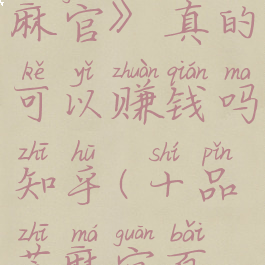 麻官》真的
kě yǐ zhuàn qián ma
可以赚钱吗
zhī hū shí pǐn
知乎(十品
zhī má guān bǎi
芝麻官百